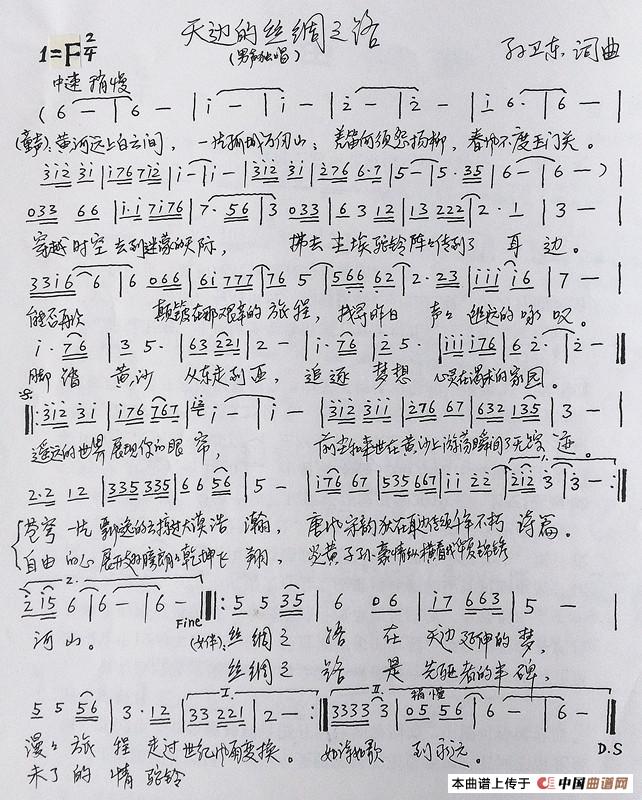 天边的丝绸之路
(男声独唱)
1=F 2/4
孙卫东 词曲
中速 稍慢
( 6 — | 6 — | i — | i — | 2 — | 2 — | i 6· | 6 — |
(童声): 黄河远上白云间， 一片孤城万仞山； 羌笛何须怨杨柳， 春风不度玉门关。
312 31 | i767i2 | i — | i — | 312 31 | 276 6·7 | 5 — | 5·35 | 6 — | 6 — ) |
033 66 | i·i 7i76 | 7·56 | 3 033 | 63 12 | 13 222 | 2·1 | 3 — |
穿越时空去到迷蒙的天际， 拂去尘埃驼铃阵阵传到了耳边。
33i6 6 | 6 066 | 6i 777 | 76 5 | 566 62 | 2·23 | iii i6 | 7 — |
能否再次 颠簸在那艰辛的旅程， 找寻昨日 声声悠远的咏叹。
i·76 | 3 5· | 63 221 | 2 — | i·76 | 2 5· | iii i76 | 6 2· | 2 — |
脚踏 黄沙 从东走到西， 追逐 梦想 心灵在渴求的家园。
312 31 | i76 767 | i — | i — | 312 3ii | 276 67 | 632 135 | 3 — |
遥远的世界展现你的眼帘， 前尘和来世在黄沙上游荡瞬间了无踪迹。
2·2 12 | 335 335 | 66 56 | 5 — | i76 67 | 535 667 | ii 22 | 2i2 3 | 3 — :|
苍穹一片飘逸的云掠过大漠浩瀚， 唐风宋韵犹在耳边传颂千年不朽诗篇。
自由的心展开翅膀翱翔乾坤长翔， 炎黄子孙豪情纵横看我华夏锦绣
2.
2 i5 6 | 6 — | 6 — Fine |: 5 5 35 | 6 06 | i7 663 | 5 — |
河山。 (女伴): 丝绸之路在天边延伸的梦，
丝绸之路是先驱者的丰碑，
I. II. 稍慢
5 5 56 | 3·12 | 33 221 | 2 — :| 3333 3 | 05 56 | 6 — | 6 — :|
D.S
漫漫旅程走过世纪风雨变换。 如诗如歌 到永远。
未了的情驼铃
本曲谱上传于 中国曲谱网